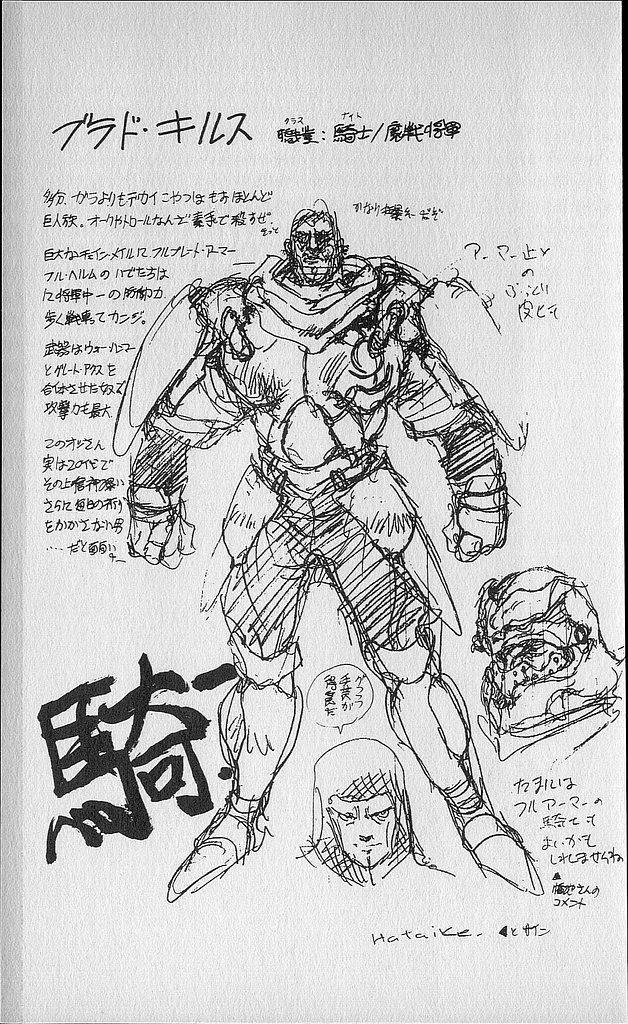 ブラド・キルス
クラス ナイト
職業: 騎士/魔戦将軍
多分、ガラよりもデカイ こやつは もお ほとんど
巨人族。オークやトロールなんぞ 素手で殺すぜ
かなり 猫系 だぞ
巨大なチェイン・メイルに フルプレート・アーマー
フル・ヘルムの いでたちは
12将軍中一の 防御力
歩く戦車ってカンジ。
武器はウォー・ハンマー
とグレート・アクスを
合体させたヤツで
攻撃力も最大
このオッさん
実は20代で
その上
さらに 毎日の祈り
をかかさない男
…だと面白い
アーマー
の
騎
手芸が
たまには
フルアーマーの
騎士も
よいかも
しれませんね
▲
さんの
コメント
Hataike. ◀とサイン